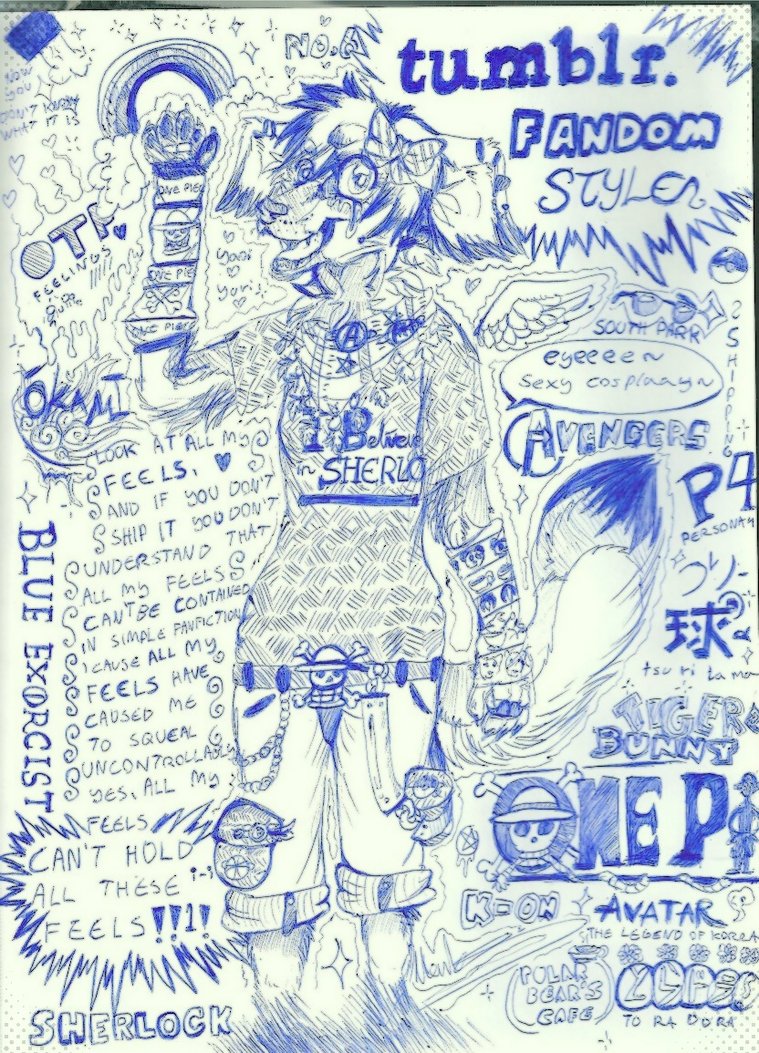 NO.6
tumblr.
FANDOM
STYLE
NOW
YOU
DON'T KNOW
WHAT IT IS
ONE PIEC
ONE PIEC
ONE PIEC
OTP
FEELINGS
Yaoi
Yuri
SOUTH PARK
SHIPPING
eyeeee~
sexy cosplaaay~
AVENGERS
ŌKAMI
I Believe
in SHERLO
LOOK AT ALL MY
FEELS,
AND IF YOU DON'T
SHIP IT YOU DON'T
UNDERSTAND THAT
ALL MY FEELS
CAN'T BE CONTAINED
IN SIMPLE FANFICTION
'CAUSE ALL MY
FEELS HAVE
CAUSED ME
TO SQUEAL
UNCONTROLLABLY
YES, ALL MY
FEELS
CAN'T HOLD
ALL THESE
FEELS!!1!
BLUE EXORCIST
P4
PERSONA4
つり
球
tsuritama
TIGER &
BUNNY
ONE PI
K-ON
AVATAR
THE LEGEND OF KORRA
POLAR
BEAR'S
CAFE
TORADORA
SHERLOCK